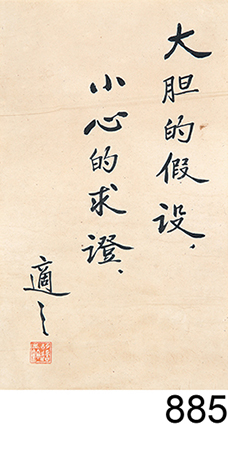 大胆的假设，
小心的求證，
適之
885